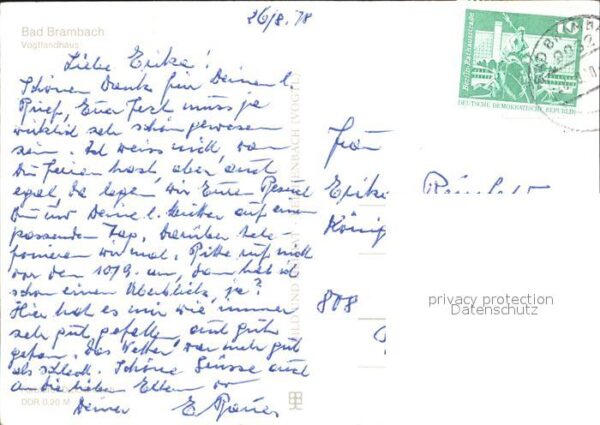 Bad Brambach
Vogtlandhaus
26/8. 78
Liebe Erika!
Schönen Dank für Deinen l.
Brief, Euer Fest muss ja
wirklich sehr schön gewesen
sein. Ich weiss nicht, wann
Du Ferien hast, aber auch
egal, da legen wir Euren Besuch
Du und Deine l. Mutter auf einen
passenden Tag. Darüber tele-
fonieren wir mal. Bitte ruf nicht
vor den 10/9. an, dann hab ich
schon einen Überblick, ja?
Hier hat es mir wie immer
sehr gut gefallen und gut
getan. Das Wetter war mehr gut
als schlecht. Schöne Grüsse auch
an die lieben Eltern von
Deiner E.
DDR 0,20 M
BILD UND
Berlin, Rathausstraße
DEUTSCHE DEMOKRATISCHE REPUBLIK
Frau
Erika
König
808
privacy protection
Datenschutz